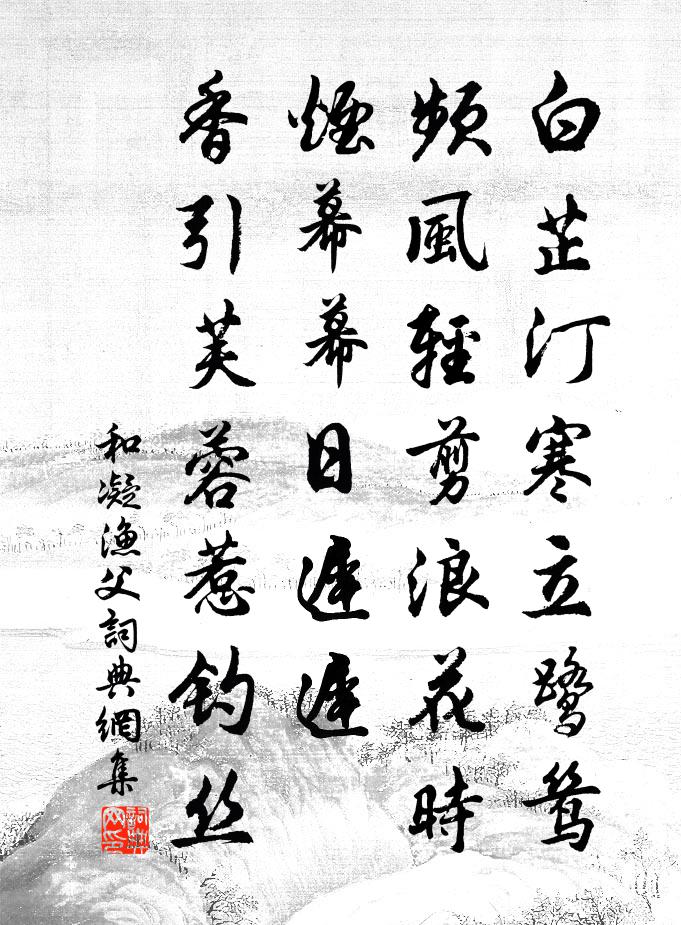 白芷汀寒立鷺鷥
頻風輕剪浪花時
煙幕幕日遲遲
香引芙蓉惹釣丝
和凝漁父詞典網集